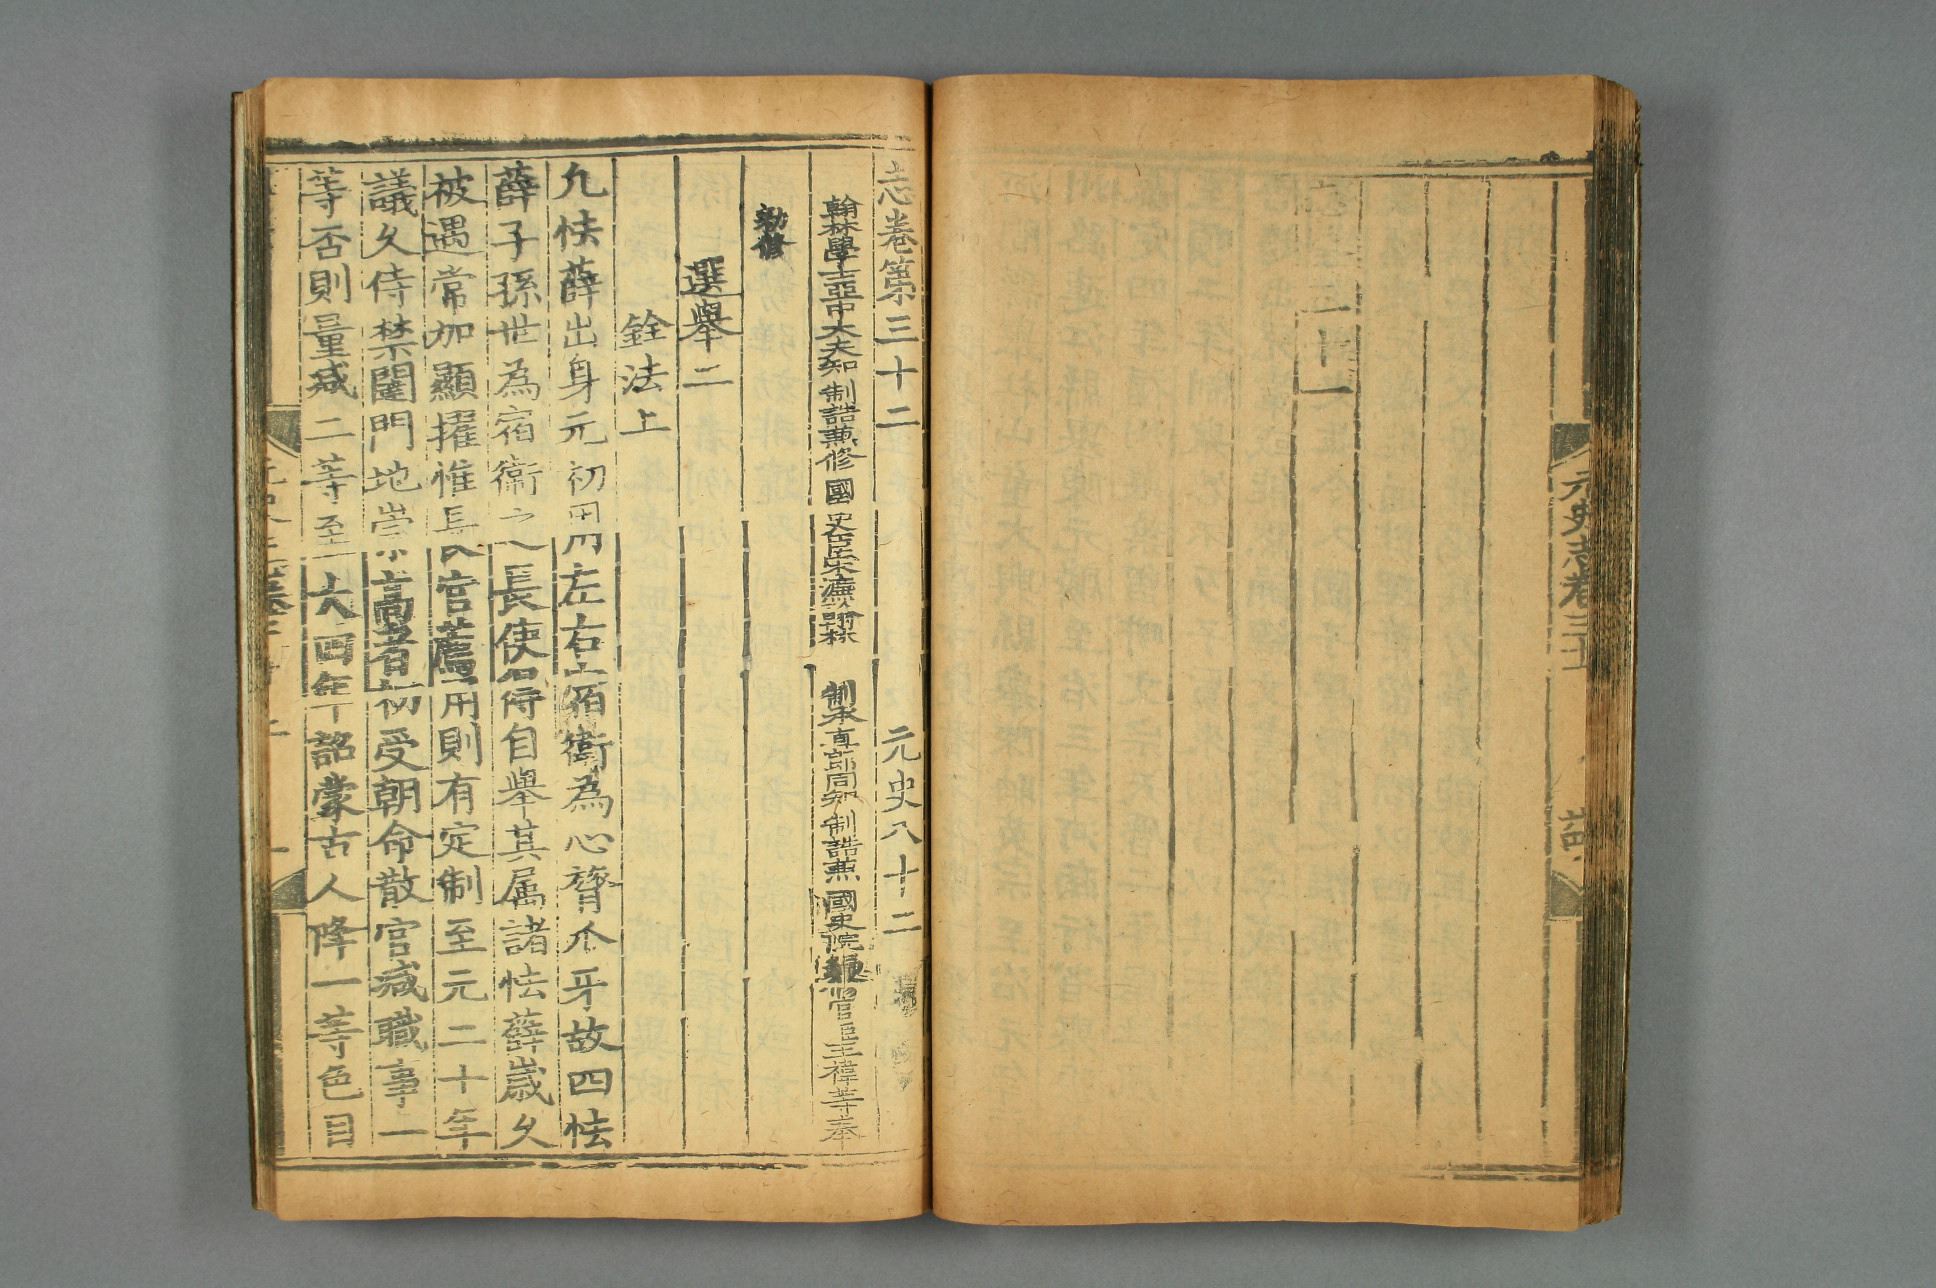 二十一
元史志卷三十一
志卷第三十二 元史八十二
翰林學士亞中大夫知制誥兼修國史臣宋濂翰林 制承直郎同知制誥兼國史院編脩官臣王禕等奉
勑修
選舉二
銓法上
凡怯薛出身元初用左右宿衛為心膂爪牙故四怯
薛子孫世為宿衛之長使得自舉其属諸怯薛歲久
被遇常加顯擢惟長官薦用則有定制至元二十年
議久侍禁闥門地崇高者初受朝命散官减職事一
等否則量减二等至大四年詔蒙古人降一等色目